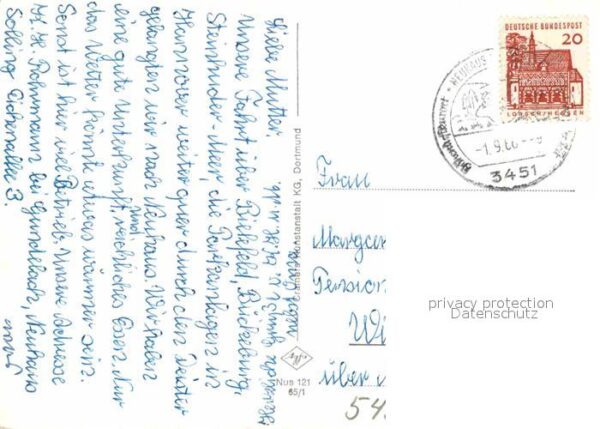 Liebe Mutter!
Unsere Fahrt über Bielefeld, Bückeburg,
Steinhuder-Meer, die Herrenhausen in
Hannover weiter quer durch den Deister
gelangten wir nach Neuhaus. Wir haben
eine gute Unterkunft und reichliches Essen. Nur
das Wetter könnte etwas wärmer sein.
Sonst ist hier viel Betrieb. Unsere Adresse
H. H. bei Gundelach, Neuhaus
Solling Eichenallee 3.
Cramers Kunstanstalt KG, Dortmund
Nus 121
65/1
DEUTSCHE BUNDESPOST
20
LORSCH/HESSEN
NEUHAUS
-1.9.66
3451
Frau
Margar
Pension
Wi
über
privacy protection
Datenschutz
54